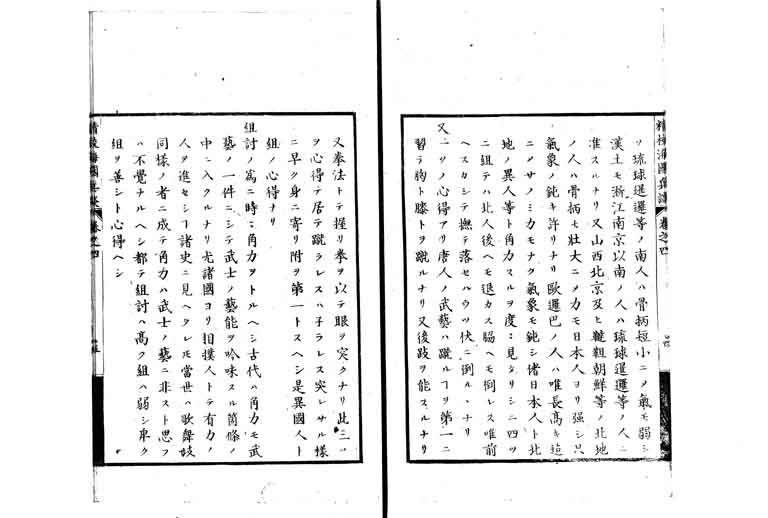 ヲ琉球暹邏等ノ南人ハ骨柄短小ニメ氣モ弱シ
漢土モ浙江南京以南ノ人ハ琉球暹邏等ノ人ニ
准スルナリ又山西北京及ヒ韃靼朝鮮等ノ北地
ノ人ハ骨柄モ壯大ニメ力モ日本人ヨリ强シ只
氣象ノ鈍キ許リナリ歐邏巴ノ人ハ唯長髙キ
ニノサノミ力モナク氣象モ鈍シ偖日本人ト北
地ノ異人等ト角力スルヲ度々見タリシニ四ツ
ニ組テハ北人後ヘモ退カス脇ヘモ倒レス唯前
ヘスカシテ撫テ落セハウツ伏ニ倒ルヽナリ
又一ツノ心得アリ唐人ノ武藝ハ蹴ルヿヲ第一ニ
習ラ胸ト膝トヲ蹴ルナリ又後跂ヲ能スルナリ
精校海國兵談 卷之四
又拳法トテ握リ拳ヲ以テ眼ヲ突クナリ此三ツ
ヲ心得テ居テ蹴ラレスハ子ラレス突レサル樣
ニ早ク身ニ寄リ附ヲ第一トスヘシ是異國人ト
組ノ心得ナリ
組討ノ爲ニ時々角力ヲトルヘシ古代ハ角力モ武
藝ノ一件ニシテ武士ノ藝能ヲ吟味スル箇條ノ
中ニ入クルナリ尤諸國ヨリ相撲人トテ有力ノ
人ヲ進セシヿ諸史ニ見ヘタレ𪜈當世ハ歌舞妓
同樣ノ者ニ成テ角力ハ武士ノ藝ニ非スト思フ
ハ不覺ナルヘシ都テ組討ハ髙ク組ハ弱シ卑ク
組ヲ善シト心得ヘシ
精校海國兵談 卷之四